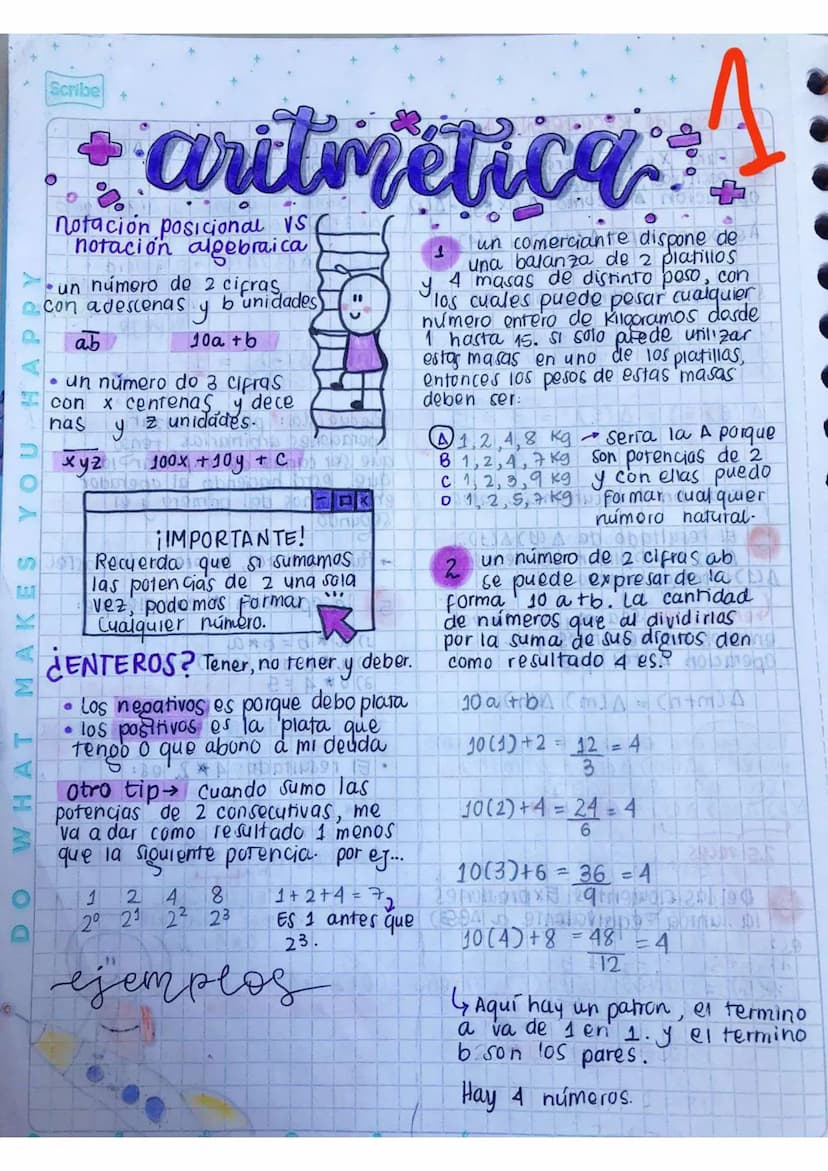 Scribe
1
aritmética
DO WHAT MAKES YOU HAPPY
notación posicional VS
notación algebraica
• un número de 2 cifras
con a descenas y b unidades
ab 10a + b
• un número do 3 cifras
con x centenas y dece
nas y z unidades.
xyz 100x + 10y + C
¡IMPORTANTE!
Recuerda que si sumamos
las potencias de 2 una sola
vez, podemos formar
cualquier número.
¿ENTEROS? Tener, no tener y deber.
• Los negativos es porque debo plata
• los positivos es la plata que
tengo o que abono a mi deuda
otro tip → cuando sumo las
potencias de 2 consecutivas, me
va a dar como resultado 1 menos
que la siguiente potencia. por ej...
1 2 4 8 1+2+4 = 7,
2⁰ 2¹ 2² 2³ ES 1 antes que
2³.
ejemplos
1 un comerciante dispone de
una balanza de 2 platillos
y 4 masas de distinto peso, con
los cuales puede pesar cualquier
número entero de kilogramos desde
1 hasta 15. si solo puede unilizar
estas masas en uno de los platillas,
entonces los pesos de estas masas
deben ser:
A 1, 2, 4, 8 Kg → sería la A porque
B 1, 2, 4, 7 Kg son potencias de 2
C 1, 2, 3, 9 Kg y con ellas puedo
D 1, 2, 5, 7 Kg formar cualquier
número natural.
2 un número de 2 cifras ab
se puede expresar de la
forma 10 a+b. La cantidad
de números que al dividirlas
por la suma de sus digitos den
como resultado 4 es:
10a + b
10(1)+2 = 12 = 4
3
10(2)+4 = 24 = 4
6
10(3)+6 = 36 = 4
9
10(4)+8 = 48 = 4
12
↳ Aquí hay un patron, el termino
a va de 1 en 1. y el termino
b son los pares.
Hay 4 números.